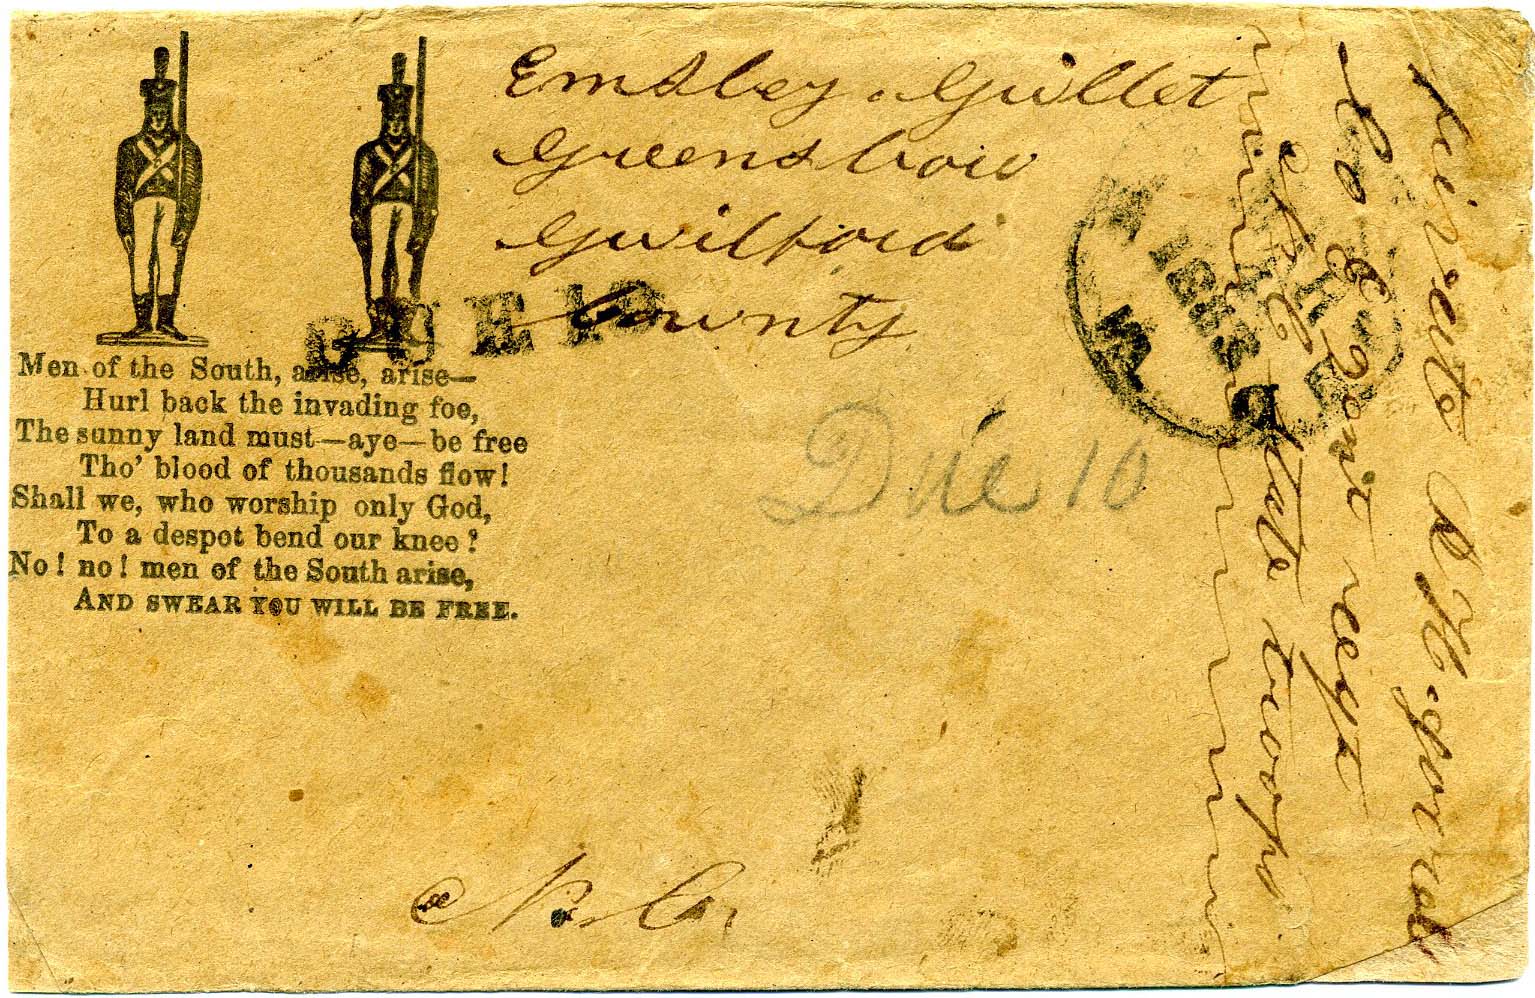 Emsley. Guillet
Greensboro
Guilford
County
DUE 10
Men of the South, arise, arise—
Hurl back the invading foe,
The sunny land must—aye—be free
Tho' blood of thousands flow!
Shall we, who worship only God,
To a despot bend our knee?
No! no! men of the South arise,
AND SWEAR YOU WILL BE FREE.
Due 10
N. Co.
Co E
State troops